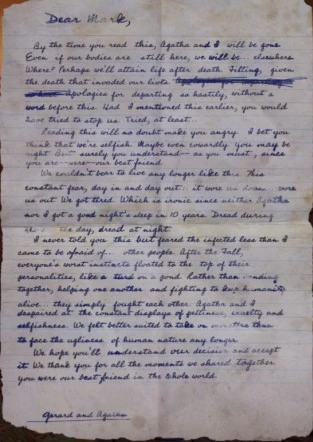 Dear Mark,
By the time you read this, Agatha and I will be gone
Even if our bodies are still here, we will be... elsewhere
Where? Perhaps we'll attain life after death. Fitting, given
the death that invaded our lives
Apologies for departing so hastily, without a
word before this. Had I mentioned this earlier, you would
have tried to stop us. Tried, at least.
Reading this will no doubt make you angry. I bet you
think that we're selfish. Maybe even cowardly. You may be
right. But surely you understand— as you must, since
you are—were—our best friend.
We couldn't bear to live any longer like this. This
constant fear, day in and day out... it wore us down... wore
us out. We got tired. Which is ironic since neither Agatha
nor I got a good night's sleep in 10 years. Dread during
the day, dread at night.
I never told you this but feared the infected less than I
came to be afraid of... other people. After the Fall,
everyone's worst instincts floated to the top of their
personalities, like a turd on a pond. Rather than banding
together, helping one another and fighting to keep humanity
alive.. they simply fought each other. Agatha and I
despaired at the constant displays of pettiness, cruelty and
selfishness. We felt better suited to take on monsters than
to face the ugliness of human nature any longer.
We hope you'll understand over decision and accept
it. We thank you for all the moments we shared together
you were our best friend in the whole world.
Gerard and Agatha